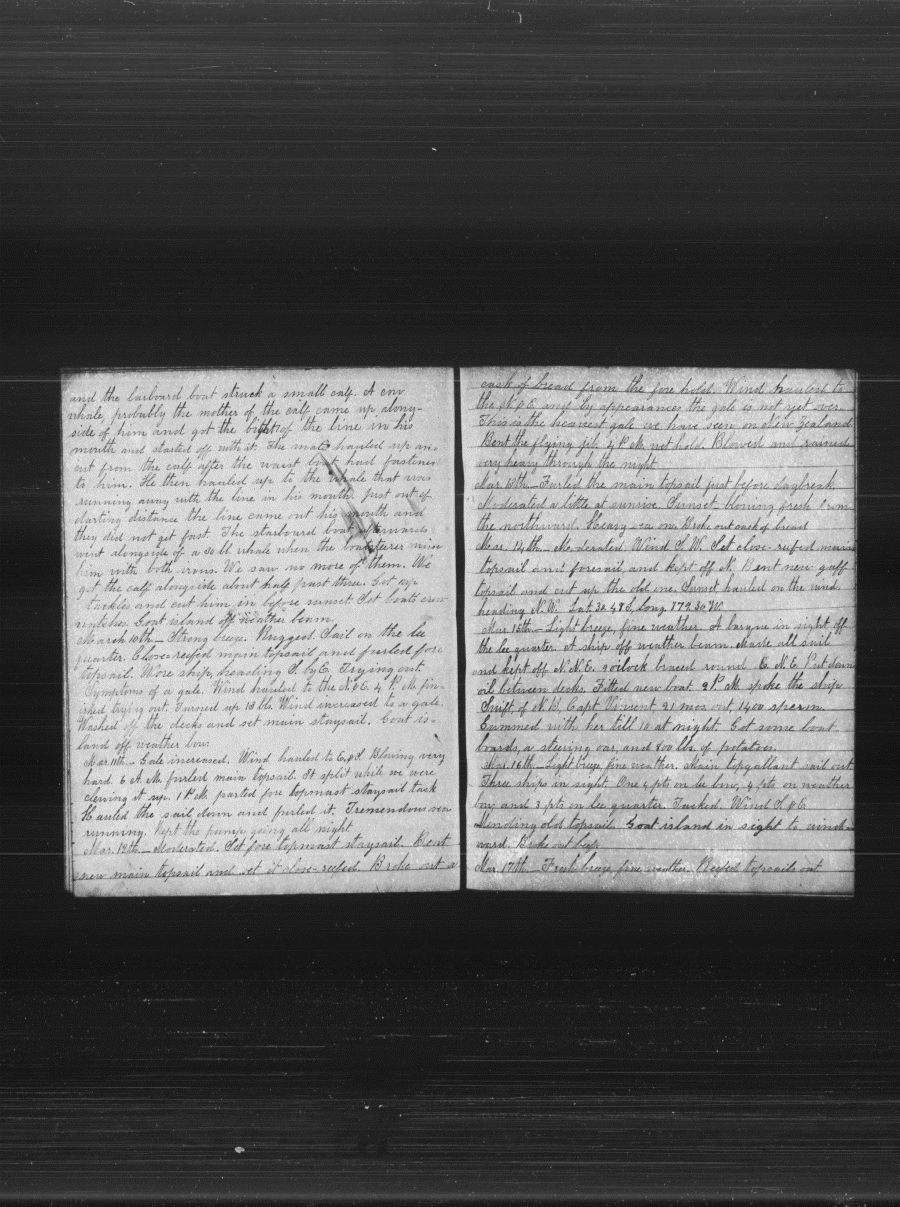 and the larboard boat struck a small calf. A cow
whale, probably the mother of the calf came up along-
side of him and got the bight of the line in his
mouth and started off with it. The mate hauled up an
cut from the calf after the waist boat had fastened
to him. He then hauled up to the whale that was
running away with the line in his mouth. Just out of
darting distance the line came out his mouth and
they did not get fast. The starboard boat afterwards
went alongside of a 80 bbl whale when the boatsteerer missed
him with both irons. We saw no more of them. We
got the calf alongside about half past three. Got up
tackles and cut him in before sunset. Set boats crew
watches. Goat island off weather beam.
March 10th — Strong breeze. Rugged. Sail on the lee
quarter. Close-reefed main topsail and furled fore
topsail. Wore ship, heading S. by E. Trying out
Symptoms of a gale. Wind hauled to the N&E. 4 P.M. fin-
ished trying out. Turned up 13 bbls. Wind increased to a gale.
Washed off the decks and set main staysail. Goat is-
land off weather bow.
Mar. 11th — Gale increased. Wind hauled to E&S. Blowing very
hard. 6 A.M. furled main topsail. It split while we were
clewing it up. 1 P.M. parted fore topmast staysail tack
Hauled the sail down and furled it. Tremendous sea
running. Kept the pump going all night.
Mar. 12th — Moderated. Set fore topmast staysail. Bent
new main topsail and set it close-reefed. Broke out a
cask of bread from the fore hold. Wind hauled to
the N&E and by appearances the gale is not yet over.
This is the heaviest gale we have seen on New Zealand
Bent the flying jib. 4 P.M. wet holds. Blowed and rained
very heavy through the night
Mar. 13th — Furled the main topsail just before daybreak
Moderated a little at sunrise. Sunset blowing fresh from
the northward. Heavy sea on. Broke out cask of bread
Mar. 14th. Moderated. Wind S.W. Set close-reefed main
topsail and foresail and kept off N. Bent new gaff
topsail and cut up the old one. Sunset hauled on the wind,
heading N.W. Lat 32 48 S, Long. 179 30 W.
Mar. 15th — Light breeze, fine weather. A barque in sight off
the lee quarter. A ship off weather beam. Made all sail
and kept off N.N.E. 9 oclock braced round E.N.E. Put down
oil between decks. Fitted new boat. 2 P.M. spoke the ship
Swift of N.B, Capt Vincent 21 mos out, 1400 sperm.
Gammed with her till 10 at night. Got some boat
boards, a steering oar, and 800 lbs. of potatoes.
Mar. 16th — Light breeze, fine weather. Main topgallant sail out
Three ships in sight. One 4 pts on lee bow, 4 pts on weather
bow and 3 pts on lee quarter. Tacked. Wind S&E.
Mending old topsail. Goat island in sight to wind-
ward. Broke out beef.
Mar. 17th. — Fresh breeze, fine weather. Reefed topsails out